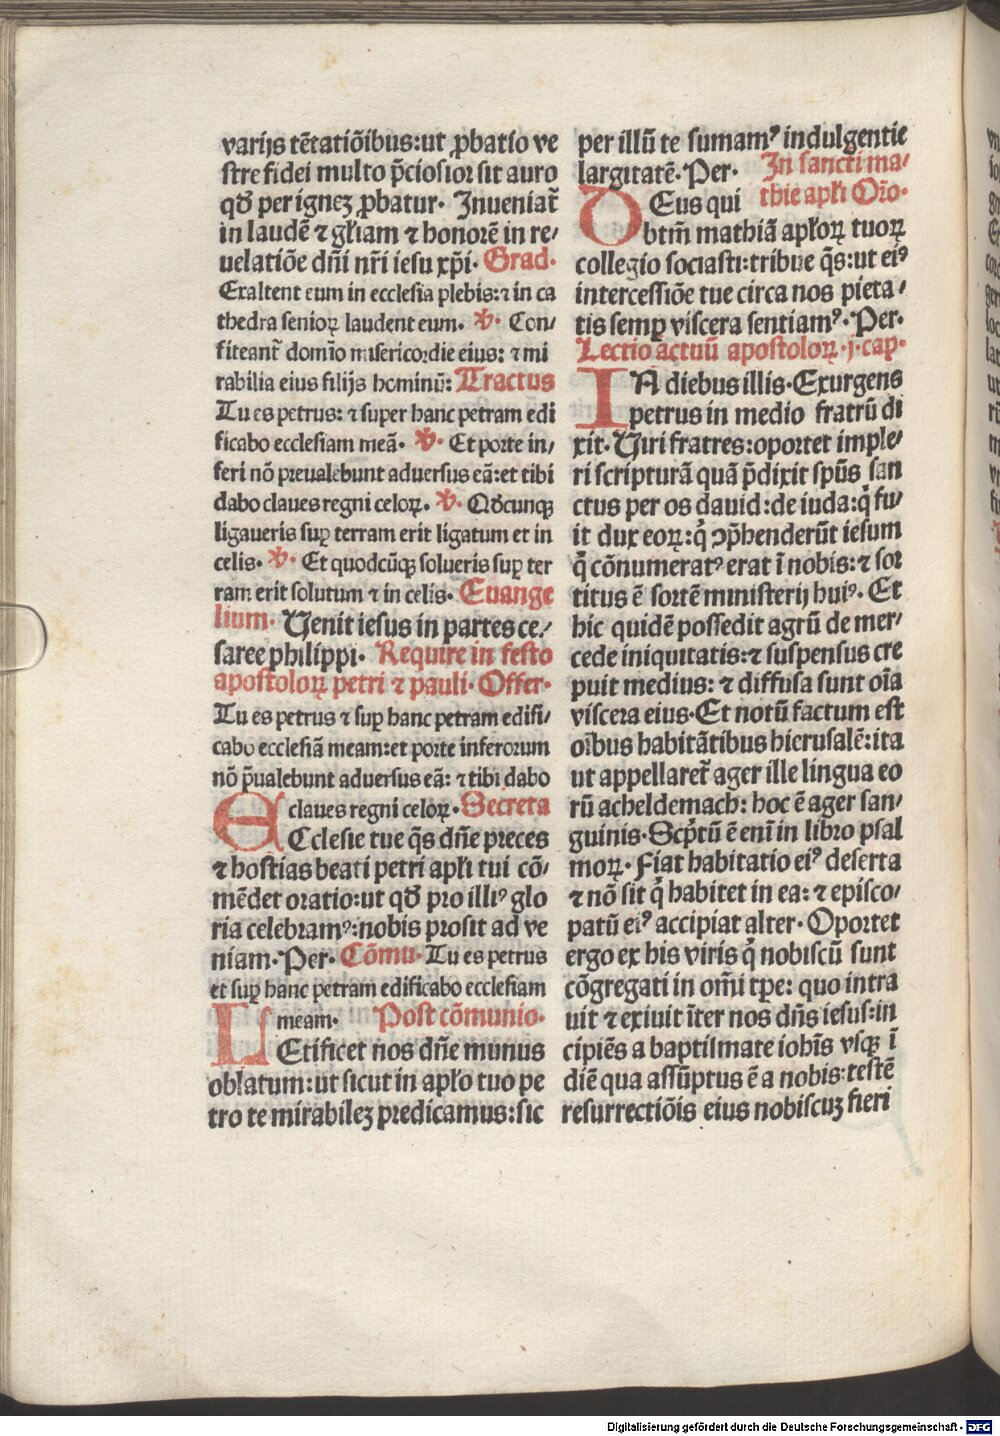 varijs tētatiōibus:ut ꝓbatio ve
stre fidei multo p̄ciosior sit auro
qđ per ignez ꝓbatur· Jnueniat᷑
in laudē ⁊ gl̄iam ⁊ honorē in re/
uelatiōe dn̄i nr̄i iesu xp̄i· Grad·
Exaltent eum in ecclesia plebis:⁊ in ca
thedra senioꝝ laudent eum· ℣· Con/
fiteant᷑ domīo misericordie eius: ⁊ mi
rabilia eius filijs hominū: Tractus
Tu es petrus: ⁊ super hanc petram edi
ficabo ecclesiam meā· ℣· Et porte in/
feri nō preualebunt aduersus eā:et tibi
dabo claues regni celoꝝ· ℣· Qđcunqꝫ
ligaueris suꝑ terram erit ligatum et in
celis· ℣· Et quodcūqꝫ solueris suꝑ ter
ram erit solutum ⁊ in celis· Euange
lium· Uenit iesus in partes ce/
saree philippi· Require in festo
apostoloꝝ petri ⁊ pauli· Offer·
Tu es petrus ⁊ suꝑ hanc petram edifi/
cabo ecclesiā meam:et porte inferorum
nō p̄ualebunt aduersus eā: ⁊ tibi dabo
claues regni celoꝝ· Secreta
ECclesie tue q̄s dn̄e preces
⁊ hostias beati petri apl̄i tui cō/
mēdet oratio:ut qđ pro illiꝰ glo
ria celebramꝰ:nobis prosit ad ve
niam·Per· Cōmu· Tu es petrus
et suꝑ hanc petram edificabo ecclesiam
meam· Post cōmunio·
LEtificet nos dn̄e munus
oblatum:ut sicut in apl̄o tuo pe
tro te mirabilez predicamus:sic
per illū te sumamꝰ indulgentie
largitatē·Per· Jn sancti ma/
thie apl̄i Or̄o·
DEus qui
btm̄ mathiā apl̄oꝝ tuoꝝ
collegio sociasti:tribue q̄s:ut eiꝰ
intercessiōe tue circa nos pieta/
tis semꝑ viscera sentiamꝰ·Per·
Lectio actuū apostoloꝝ·j·cap·
IN diebus illis·Exurgens
petrus in medio fratrū di
xit·Uiri fratres:oportet imple/
ri scripturā quā p̄dixit spūs san
ctus per os dauid:de iuda:q̇ fu/
it dux eoꝝ:q̇ ꝯp̄henderūt iesum
q̇ cōnumeratꝰ erat ī nobis:⁊ sor
titus ē sortē ministerij huiꝰ· Et
hic quidē possedit agrū de mer/
cede iniquitatis:⁊ suspensus cre
puit medius: ⁊ diffusa sunt oīa
viscera eius·Et notū factum est
oībus habitātibus hierusalē:ita
ut appellaret᷑ ager ille lingua eo
rū acheldemach: hoc ē ager san/
guinis·Scp̄tū ē enī in libro psal
moꝝ· Fiat habitatio eiꝰ deserta
⁊ nō sit q̇ habitet in ea: ⁊ episco/
patū eiꝰ accipiat alter· Oportet
ergo ex his viris q̇ nobiscū sunt
cōgregati in om̄i tꝑe: quo intra
uit ⁊ exiuit īter nos dn̄s iesus:in
cipiēs a baptismate ioh̄is vsqꝫ ī
diē qua assūptus ē a nobis:testē
resurrectiōis eius nobiscuz fieri
Digitalisierung gefördert durch die Deutsche Forschungsgemeinschaft - DFG